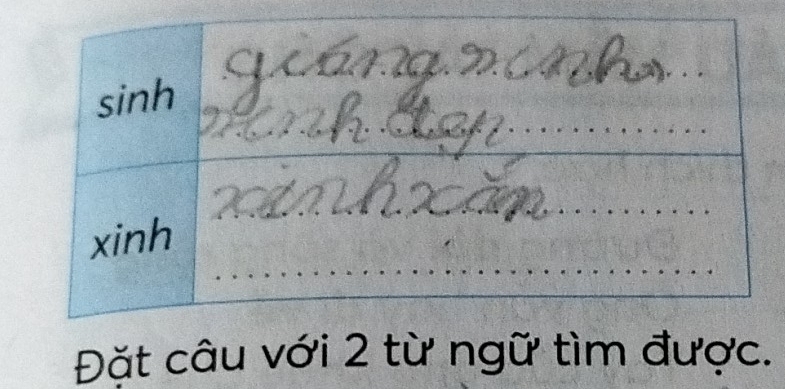 sinh
giáng sinh
xinh đẹp
xinh
xinh xắn
Đặt câu với 2 từ ngữ tìm được.